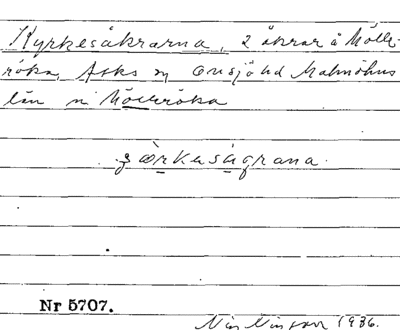 Kyrkesåkrarna, 2 åkrar å Mölle-
röka, Asks sn Onsjö hd Malmöhus
län n Mölleröka
Nr 5707.
Nils Nilsson 1936.